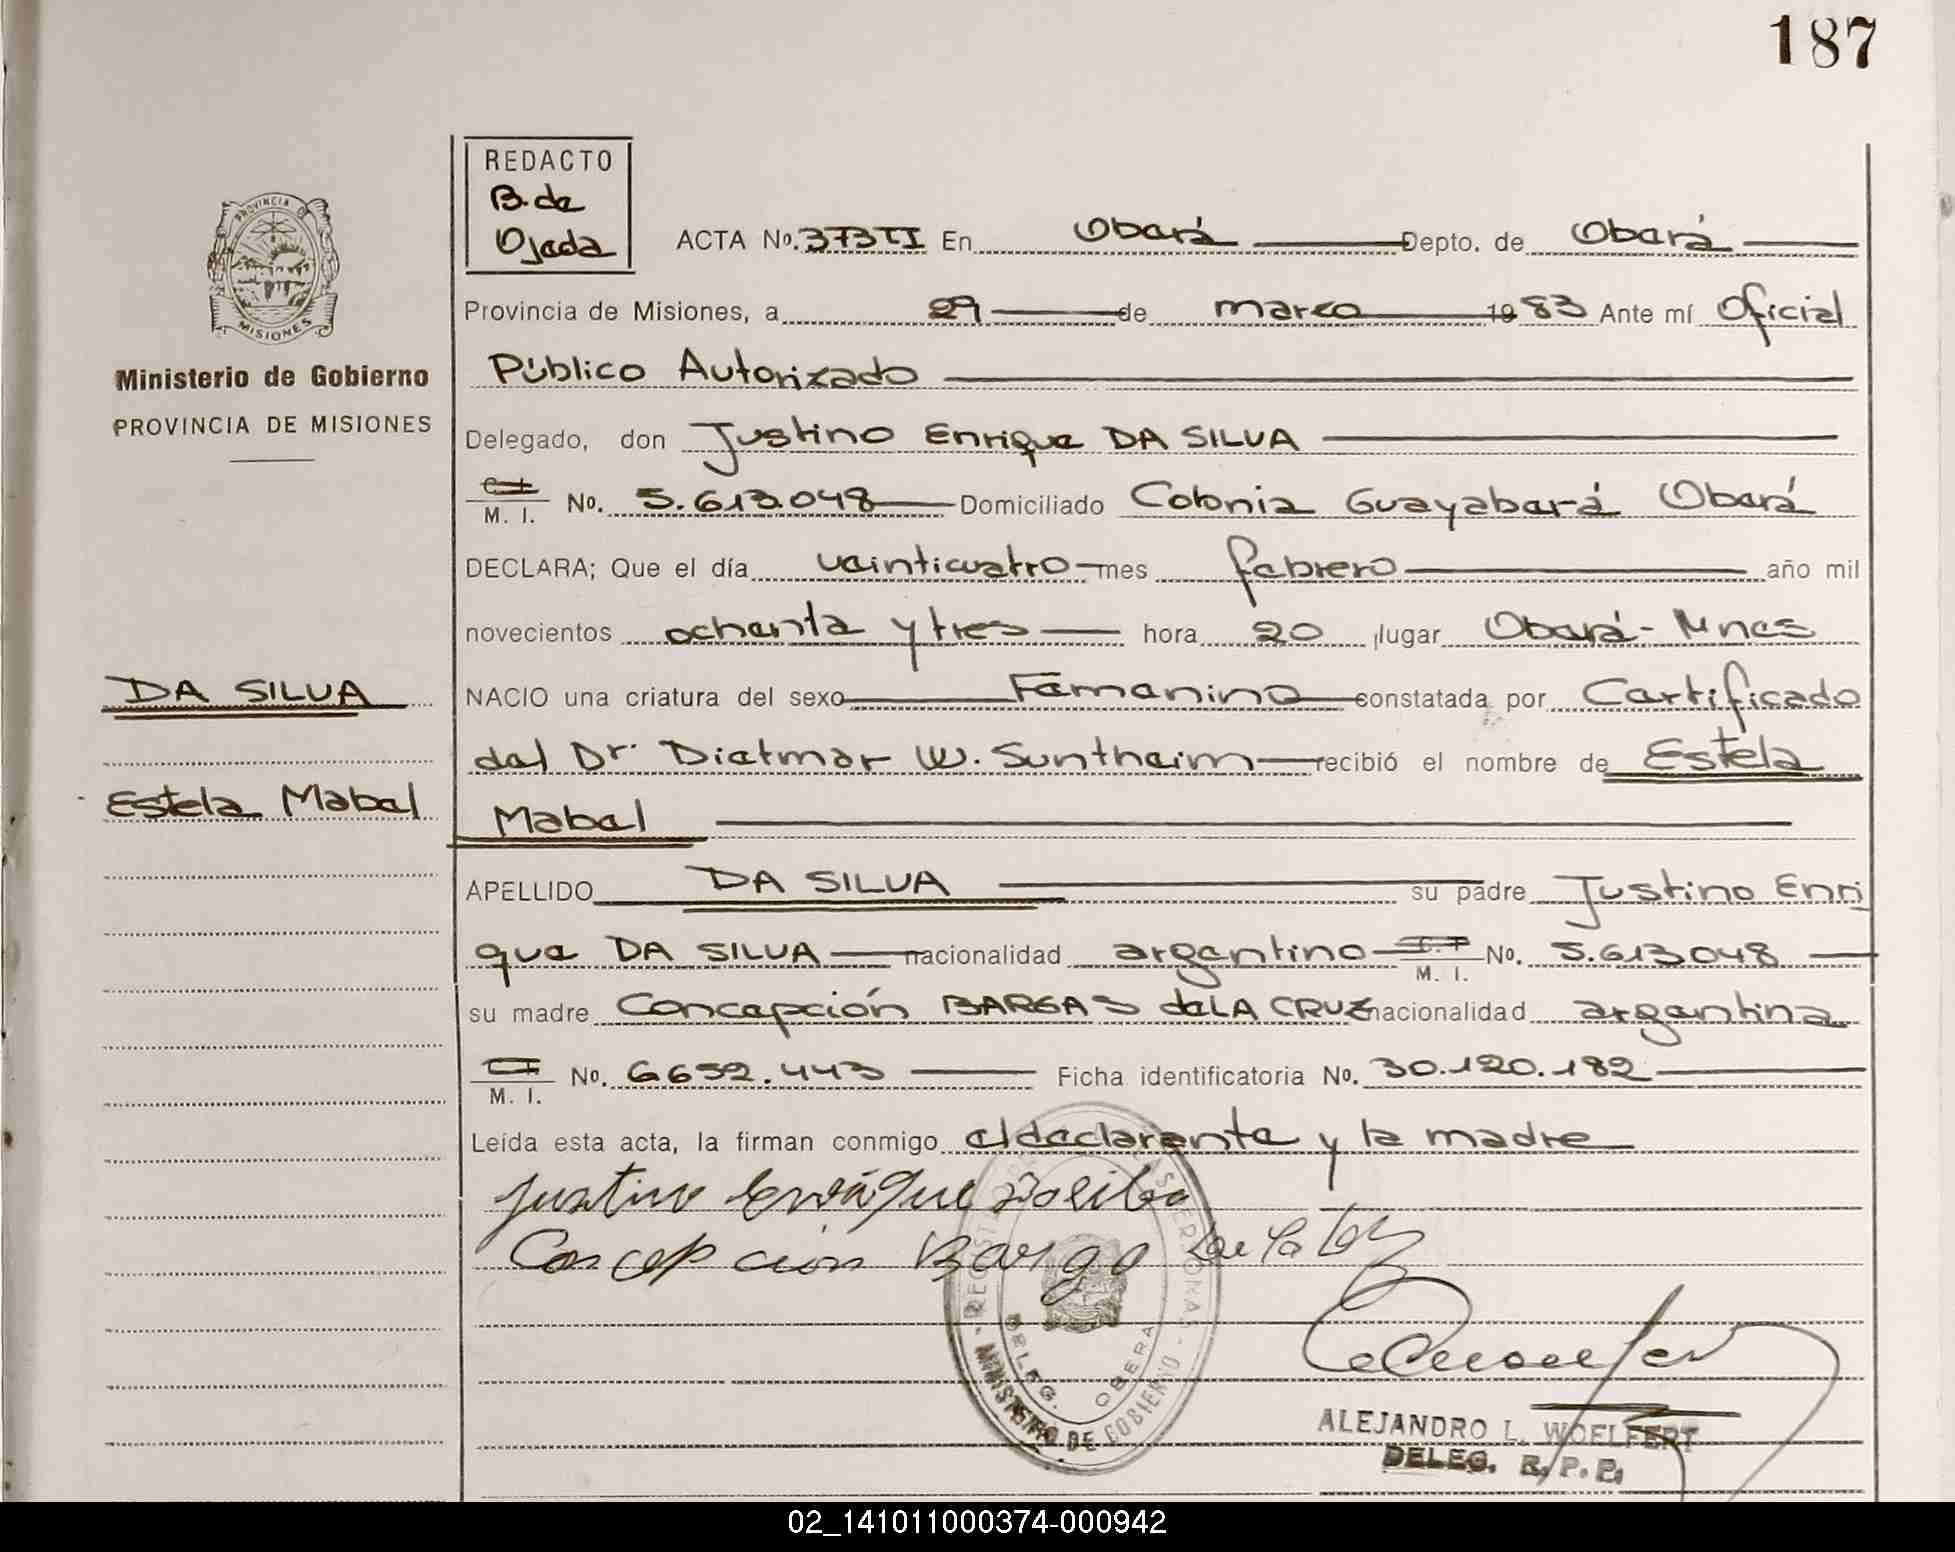 187
REDACTO
B. de
Ojeda
ACTA No. 373 TI En Oberá Depto. de Oberá
Provincia de Misiones, a 29 de marzo 1983 Ante mí Oficial
Público Autorizado
Delegado, don Justino Enrique DA SILVA
C I
M. I. No. 5.613.048 Domiciliado Colonia Guayaberá Oberá
DECLARA; Que el día veinticuatro mes febrero año mil
novecientos ochenta y tres hora 20 lugar Oberá - Mnes
NACIO una criatura del sexo Femenino constatada por Certificado
del Dr. Dietmar W. Suntheim recibió el nombre de Estela
Mabel
APELLIDO DA SILVA su padre Justino Enri
que DA SILVA nacionalidad argentino C. I M. I. No. 5.613.048
su madre Concepción BARGAS de LA CRUZ nacionalidad argentina
C I
M. I. No. 6652.443 Ficha identificatoria No. 30.120.182
Leída esta acta, la firman conmigo el declarante y la madre
Justino Enrique
Concepción Barga de la
PROVINCIA DE
MISIONES
Ministerio de Gobierno
PROVINCIA DE MISIONES
DA SILVA
Estela Mabel
DELEG. OBERA
MINISTERIO DE GOBIERNO
ALEJANDRO L. WOELFERT
DELEG. R. P. P.
02_141011000374-000942